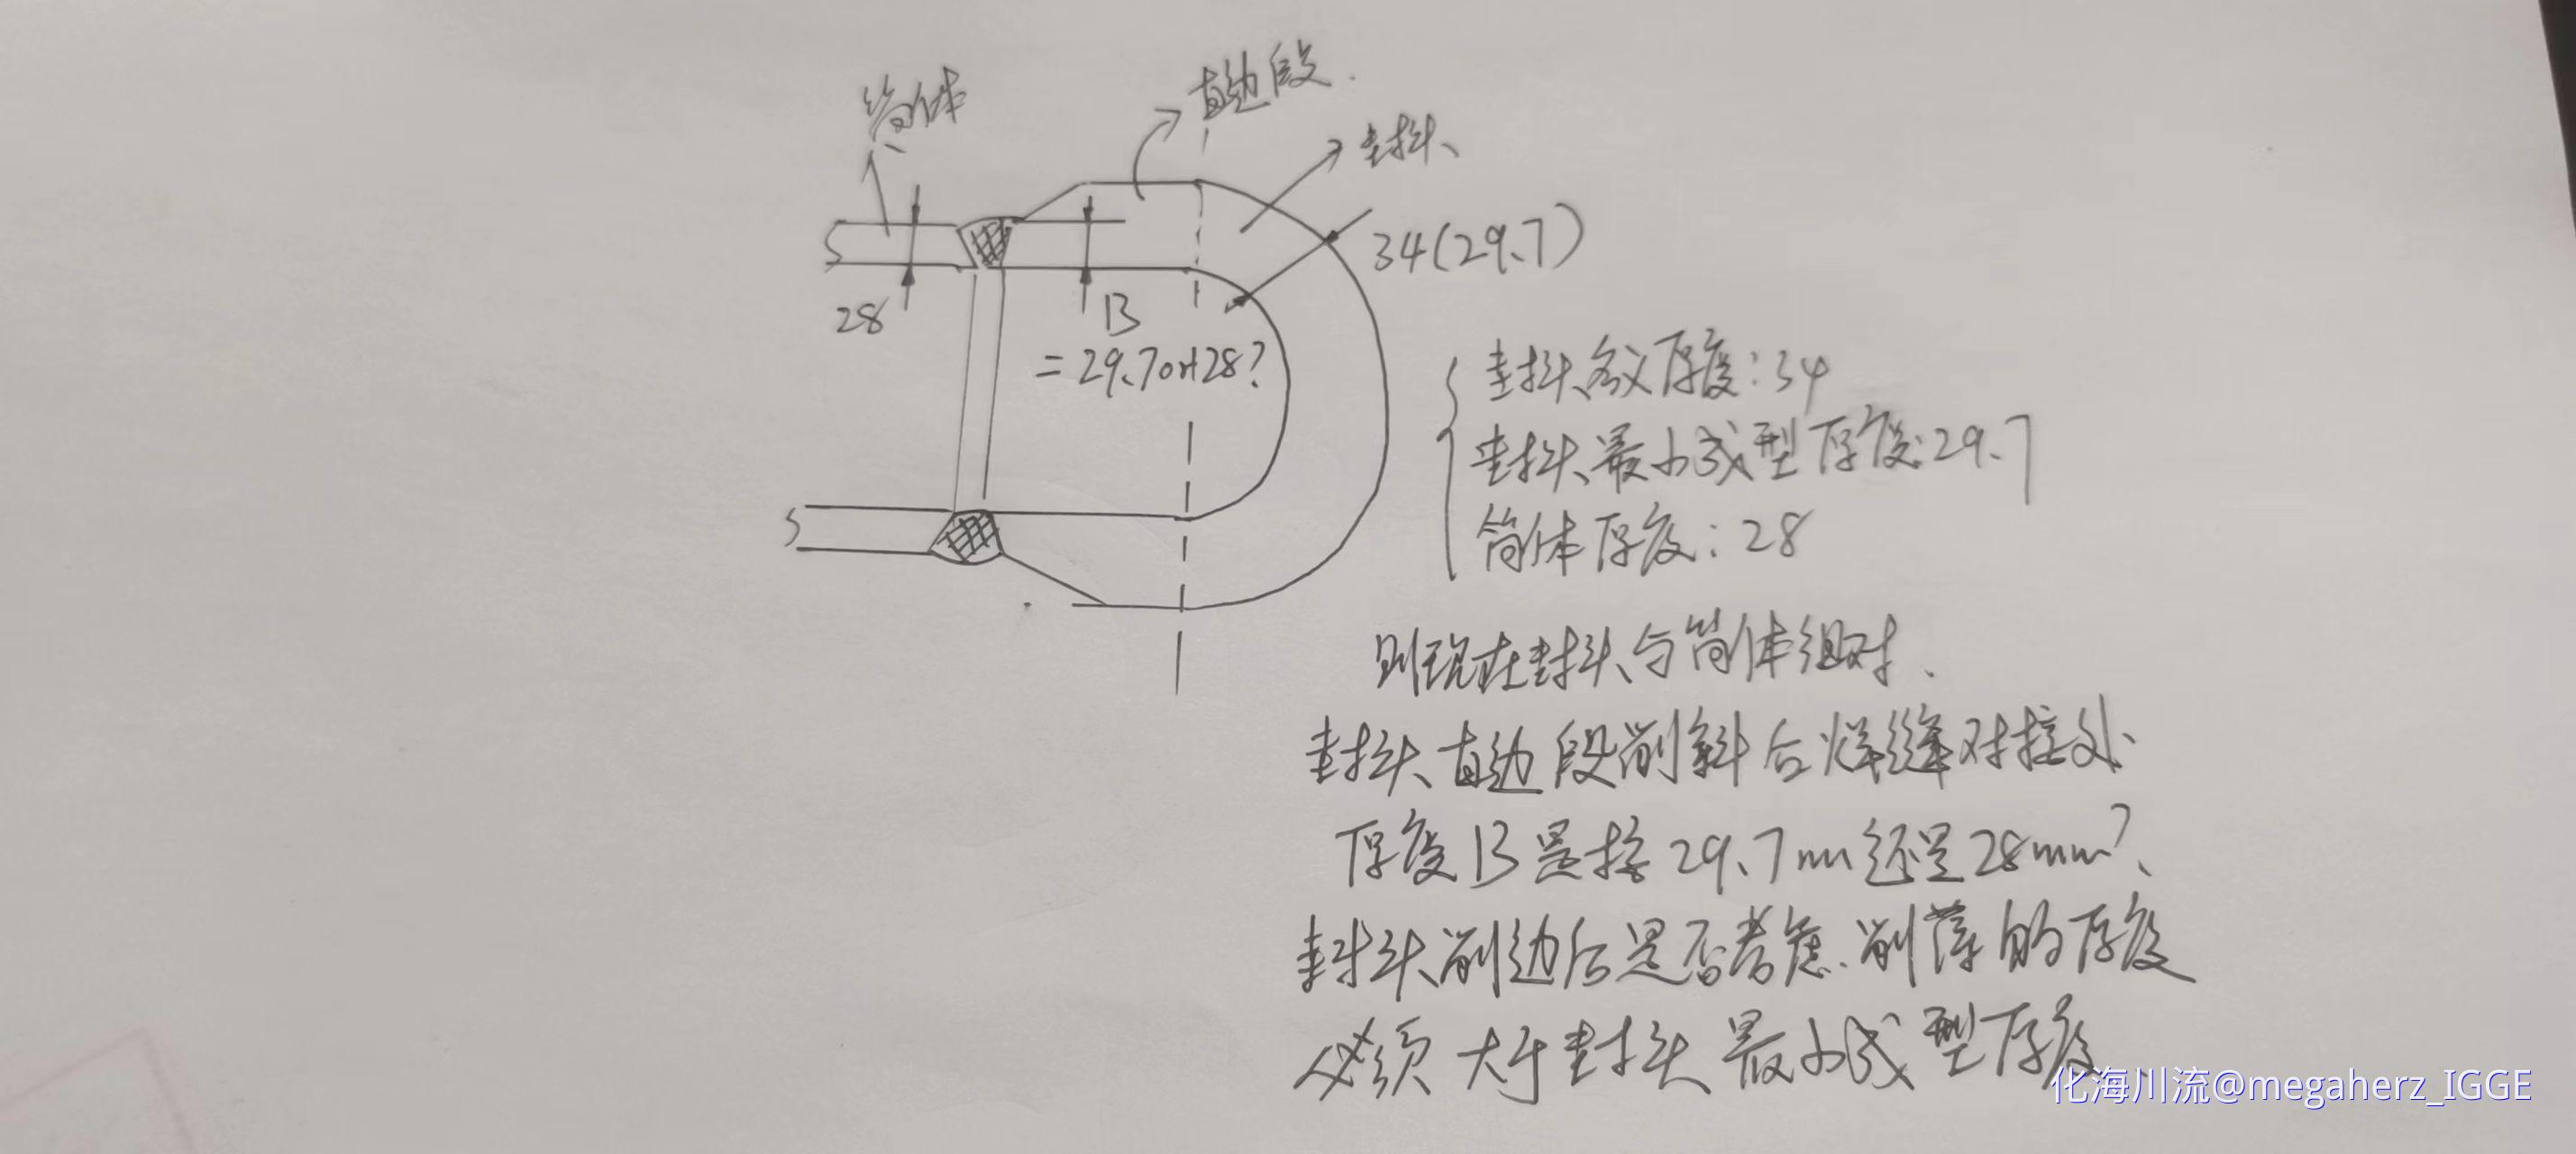 筒体
直边段.
封头
34(29.7)
28
B
=29.7or28?
封头名义厚度:34
封头最小成型厚度:29.7
筒体厚度:28
则现在封头与筒体组对.
封头直边段削斜后焊缝对接处
厚度B是按29.7mm还是28mm?
封头削边后是否考虑.削薄的厚度
必须大于封头最小成型厚度
化海川流@megaherz_IGGE